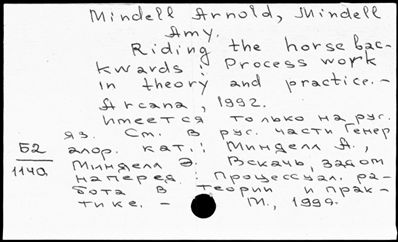 Mindell Arnold, Mindell
Amy.
Riding the horse bac-
kwards : Process work
in theory and practice. -
Arcana, 1992.
Имеется только на рус.
яз. См. в рус. части Генер
Б2 алор. кат.: Минделл А.,
Минделл Э. Вскачь, задом
1140 наперед : Процессуал. ра-
бота в теории и прак-
тике. - М., 1999.